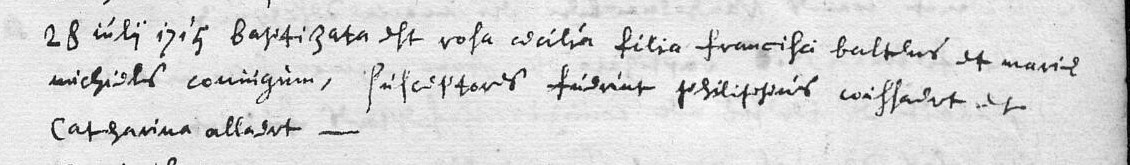 28 iulij 1715 baptizata est rosa cecilia filia francisci balteus et mariæ
michiels coniugum, susceptores fuerunt philippus coissaert et
Catharina allaert —